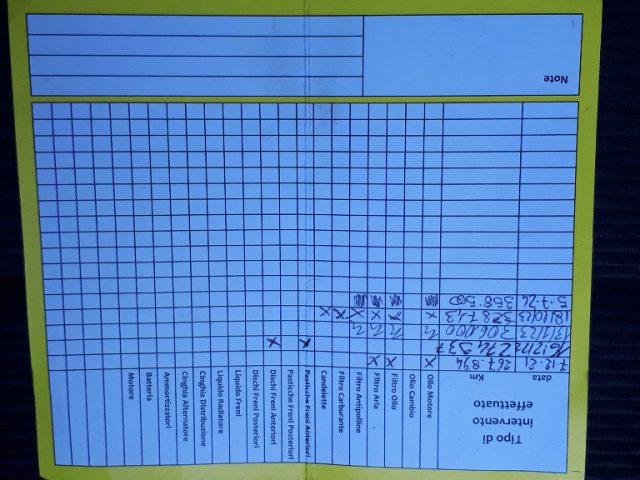 Tipo di
intervento
effettuato
data Km
Olio Motore
Olio Cambio
Filtro Olio
Filtro Aria
Filtro Antipolline
Filtro Carburante
Candelette
Pasticche Freni Anteriori
Pasticche Freni Posteriori
Dischi Freni Anteriori
Dischi Freni Posteriori
Liquido Freni
Liquido Radiatore
Cinghia Distribuzione
Cinghia Alternatore
Ammortizzatori
Batteria
Motore
7-12-21 267.894 X X X
274.337 X X
13/1/23 306.000
18/10/23 328743 X X X X X X
5-7-24 358.500
Note